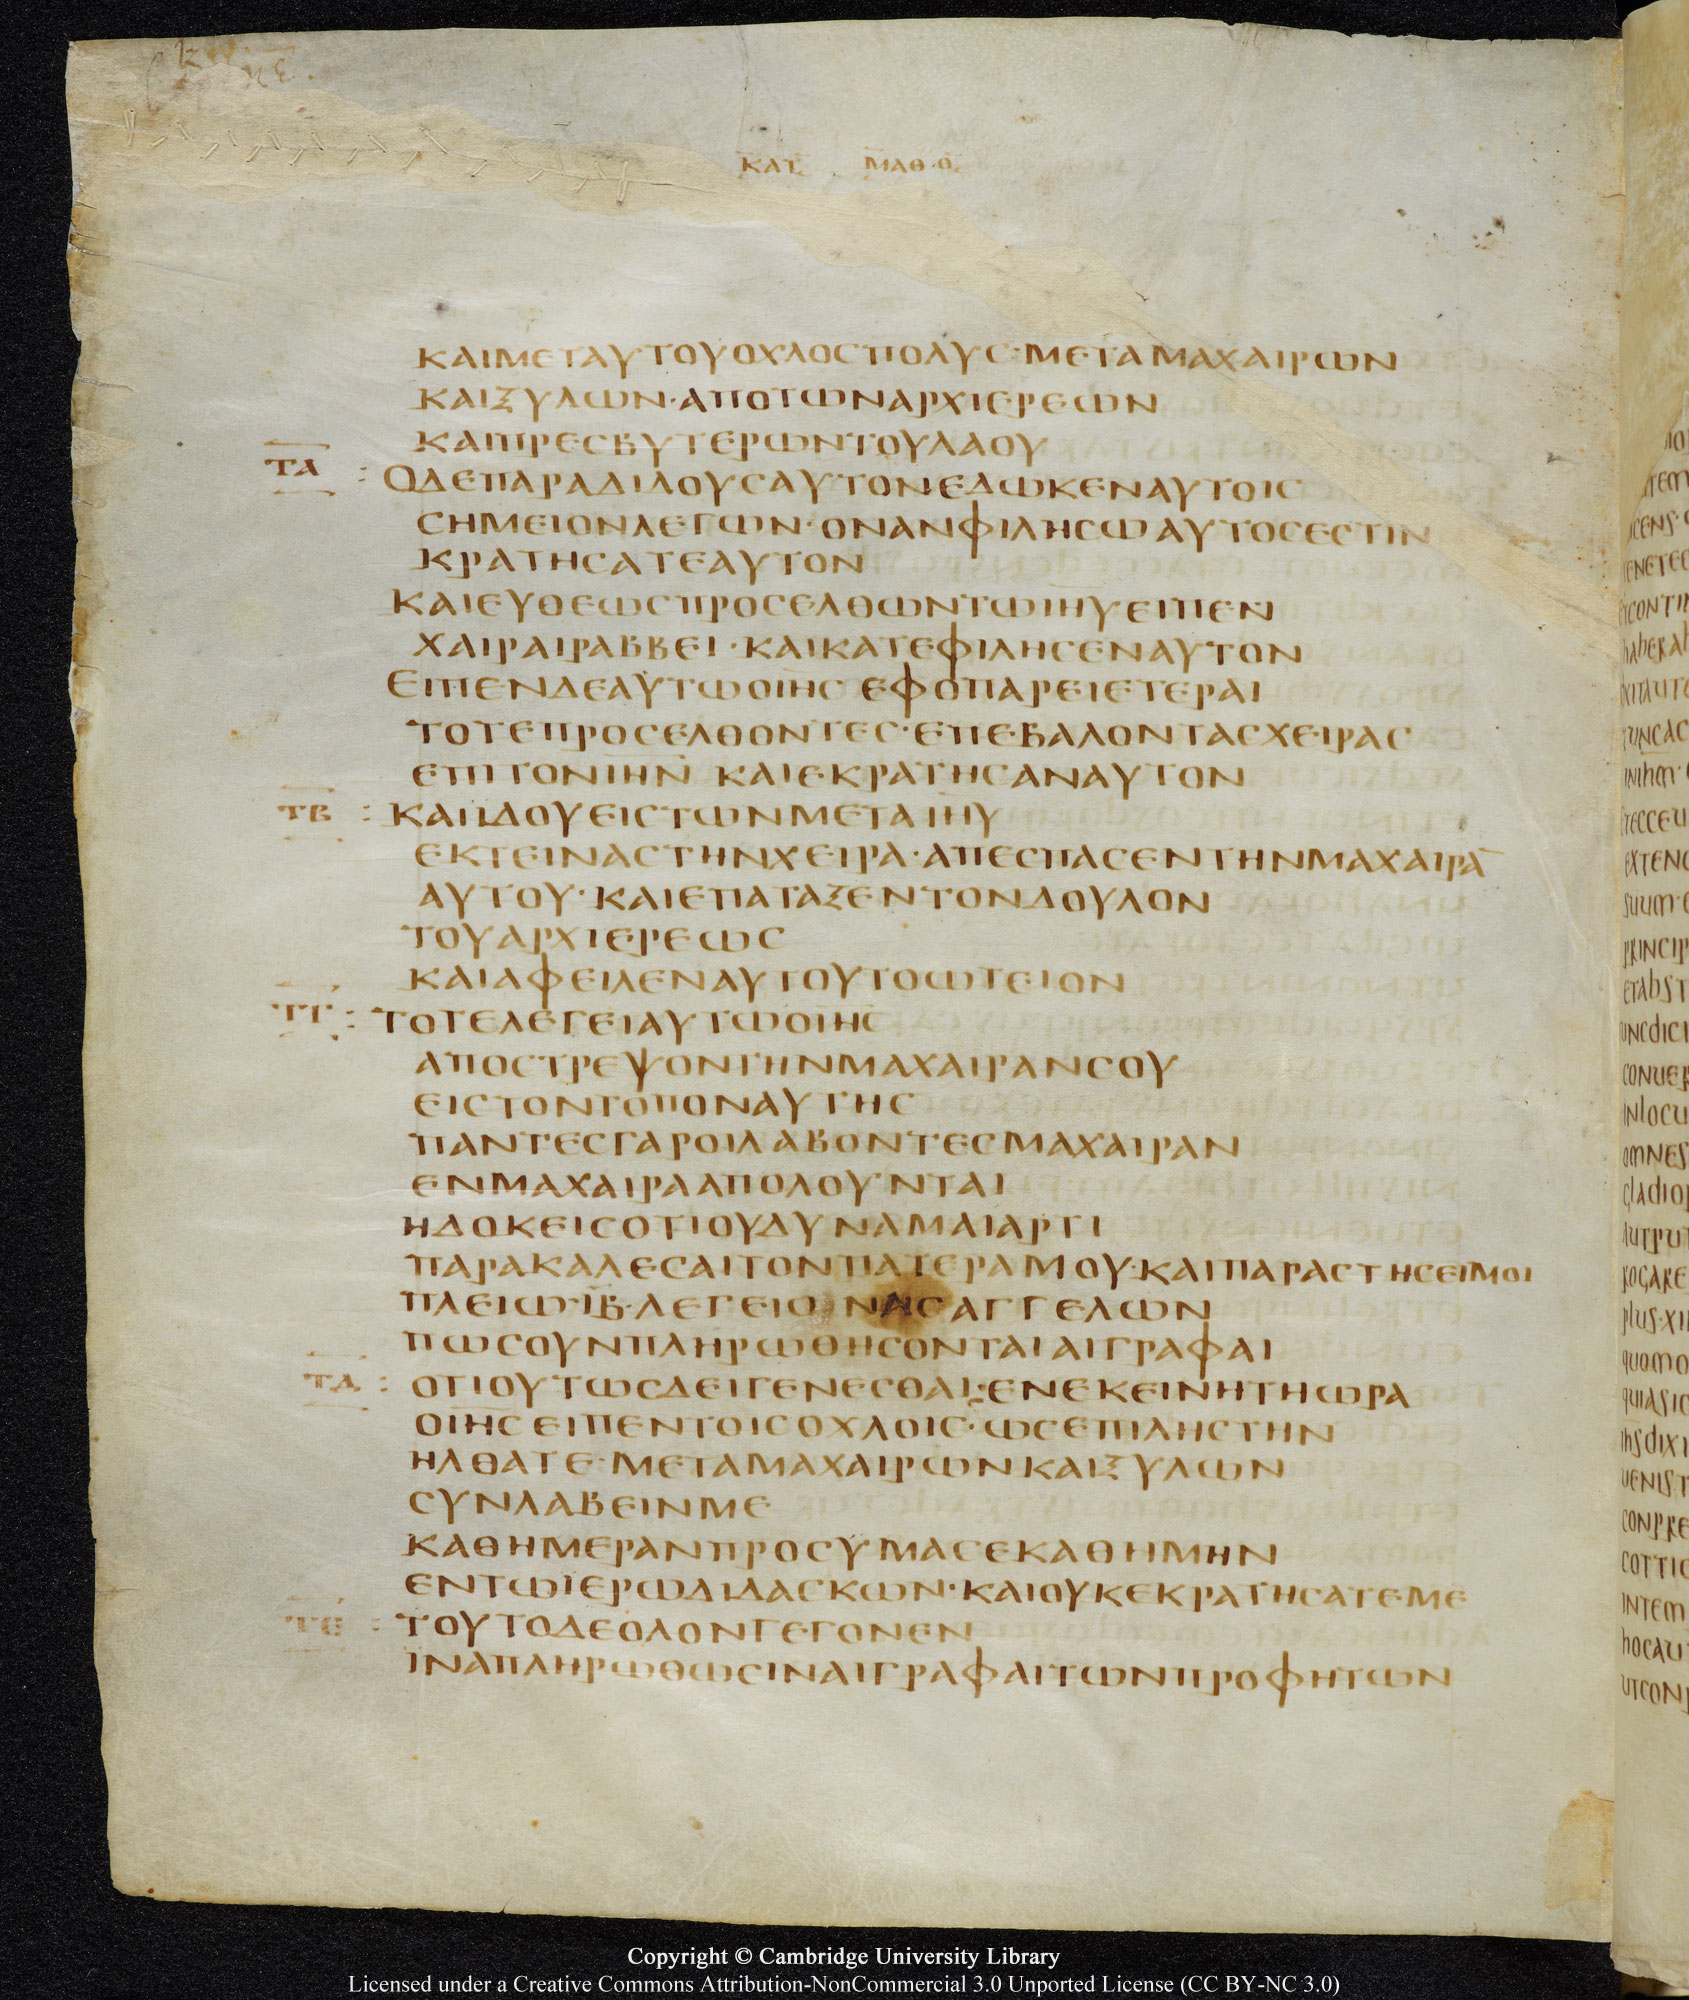 ΚΑΤ ΜΑΘΘ
ΚΑΙΜΕΤΑΥΤΟΥΟΧΛΟСΠΟΛΥС·ΜΕΤΑΜΑΧΑΙΡΩΝ
ΚΑΙΞΥΛΩΝ·ΑΠΟΤΩΝΑΡΧΙΕΡΕΩΝ
ΚΑΙΠΡΕСΒΥΤΕΡΩΝΤΟΥΛΑΟΥ
ΤΑ : ΟΔΕΠΑΡΑΔΙΔΟΥСΑΥΤΟΝΕΔΩΚΕΝΑΥΤΟΙС
СΗΜΕΙΟΝΛΕΓΩΝ·ΟΝΑΝΦΙΛΗСΩΑΥΤΟСΕСΤΙΝ
ΚΡΑΤΗСΑΤΕΑΥΤΟΝ
ΚΑΙΕΥΘΕΩСΠΡΟСΕΛΘΩΝΤΩΙΗΥΕΙΠΕΝ
ΧΑΙΡΑΙΡΑΒΒΕΙ·ΚΑΙΚΑΤΕΦΙΛΗСΕΝΑΥΤΟΝ
ΕΙΠΕΝΔΕΑΥΤΩΟΙΗС ΕΦΟΠΑΡΕΙΕΤΕΡΑΙ
ΤΟΤΕΠΡΟСΕΛΘΟΝΤΕС·ΕΠΕΒΑΛΟΝΤΑСΧΕΙΡΑС
ΕΠΙΤΟΝΙΗΝ ΚΑΙΕΚΡΑΤΗСΑΝΑΥΤΟΝ
ΤΒ : ΚΑΙΙΔΟΥΕΙСΤΩΝΜΕΤΑΙΗΥ
ΕΚΤΕΙΝΑСΤΗΝΧΕΙΡΑ·ΑΠΕСΠΑСΕΝΤΗΝΜΑΧΑΙΡΑ̅
ΑΥΤΟΥ·ΚΑΙΕΠΑΤΑΞΕΝΤΟΝΔΟΥΛΟΝ
ΤΟΥΑΡΧΙΕΡΕΩС
ΚΑΙΑΦΕΙΛΕΝΑΥΤΟΥΤΟΩΤΕΙΟΝ
ΤΓ : ΤΟΤΕΛΕΓΕΙΑΥΤΩΟΙΗС
ΑΠΟСΤΡΕΨΟΝΤΗΝΜΑΧΑΙΡΑΝСΟΥ
ΕΙСΤΟΝΤΟΠΟΝΑΥΤΗС
ΠΑΝΤΕСΓΑΡΟΙΛΑΒΟΝΤΕСΜΑΧΑΙΡΑΝ
ΕΝΜΑΧΑΙΡΑΑΠΟΛΟΥΝΤΑΙ
ΗΔΟΚΕΙСΟΤΙΟΥΔΥΝΑΜΑΙΑΡΤΙ
ΠΑΡΑΚΑΛΕСΑΙΤΟΝΠΑΤΕΡΑΜΟΥ·ΚΑΙΠΑΡΑСΤΗСΕΙΜΟΙ
ΠΛΕΙΩ·ΙΒ·ΛΕΓΕΙΩΝΗС ΑΓΓΕΛΩΝ
ΠΩСΟΥΝΠΛΗΡΩΘΗСΟΝΤΑΙΑΙΓΡΑΦΑΙ
ΤΔ : ΟΤΙΟΥΤΩСΔΕΙΓΕΝΕСΘΑΙ:ΕΝΕΚΕΙΝΗΤΗΩΡΑ
ΟΙΗСΕΙΠΕΝΤΟΙСΟΧΛΟΙС·ΩСΕΠΙΛΗСΤΗΝ
ΗΛΘΑΤΕ·ΜΕΤΑΜΑΧΑΙΡΩΝΚΑΙΞΥΛΩΝ
СΥΝΛΑΒΕΙΝΜΕ
ΚΑΘΗΜΕΡΑΝΠΡΟСΥΜΑСΕΚΑΘΗΜΗΝ
ΕΝΤΩΙΕΡΩΔΙΔΑСΚΩΝ·ΚΑΙΟΥΚΕΚΡΑΤΗСΑΤΕΜΕ
ΤΕ : ΤΟΥΤΟΔΕΟΛΟΝΓΕΓΟΝΕΝ
ΙΝΑΠΛΗΡΩΘΩСΙΝΑΙΓΡΑΦΑΙΤΩΝΠΡΟΦΗΤΩΝ
Copyright © Cambridge University Library
Licensed under a Creative Commons Attribution-NonCommercial 3.0 Unported License (CC BY-NC 3.0)